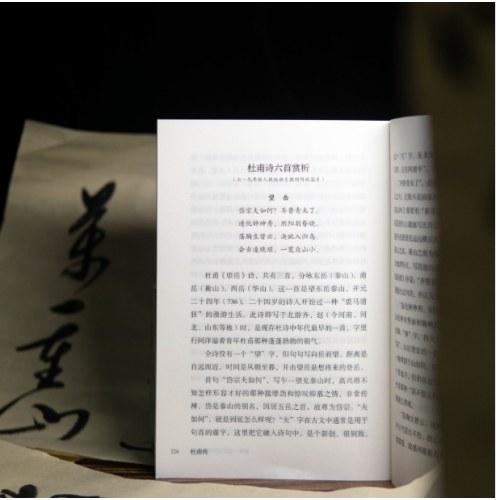 杜甫诗六首赏析
望 岳
岱宗夫如何?齐鲁青未了。
造化钟神秀,阴阳割昏晓。
荡胸生曾云,决眦入归鸟。
会当凌绝顶,一览众山小。
杜甫《望岳》诗,共有三首,分咏东岳(泰山)、南
岳(衡山)、西岳(华山)。这一首是望东岳泰山。开元
二十四年(736),二十四岁的诗人开始过一种“裘马清
狂”的漫游生活。此诗即写于北游齐、赵(今河南、河
北、山东等地)时,是现存杜诗中年代最早的一首,字里
行间洋溢着青年杜甫那种蓬蓬勃勃的朝气。
全诗没有一个“望”字,但句句写向岳而望。距离是
自远而近,时间是从朝至暮,并由望岳悬想将来的登岳。
首句“岱宗夫如何”,写乍一望见泰山时,高兴得不
知怎样形容才好的那种揣摩劲和惊叹仰慕之情,非常传
神。岱是泰山的别名,因居五岳之首,故尊为岱宗。“夫
如何”,就是到底怎么样呢?“夫”字在古文中通常是用于
句首的虚字,这里把它融入诗句中,是个新创,很别致。
杜甫传
万
重
山